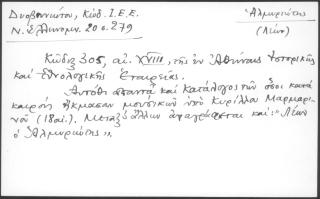 Δυοβουνιώτου, Κώδ. Ι.Ε.Ε.
Ν. Ἑλληνομν. 20 σ. 279
Ἀλμυριώτης
(Λέων)
Κώδιξ 305, αἰ. XVIII, τῆς ἐν Ἀθήναις Ἱστορικῆς
καὶ Ἐθνολογικῆς Ἑταιρείας.
Αὐτόθι ἀπαντᾷ καὶ κατάλογος τῶν ὅσοι κατὰ
καιροὺς ἤκμασαν μουσικῶν ὑπὸ Κυρίλλου Μαρμαρι-
νοῦ (18 αἰ.). Μεταξὺ ἄλλων ἀναγράφεται καὶ: "Λέων
ὁ Ἀλμυριώτης".